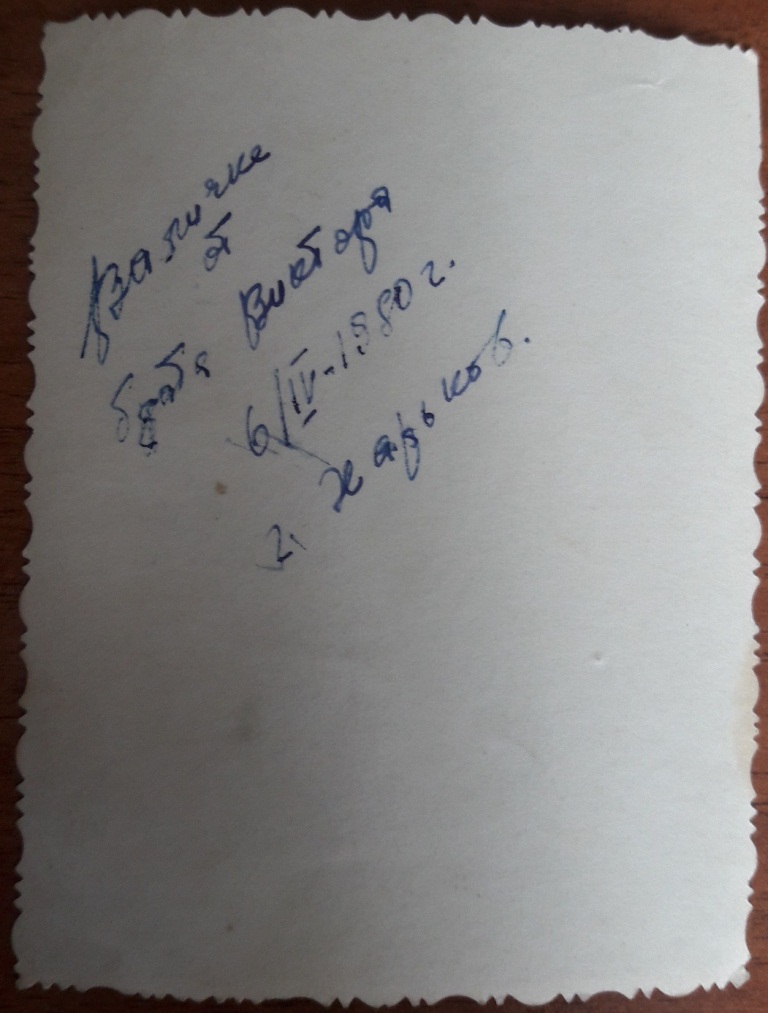 Валичке
от
брата Виктора
6/IV-1980 г.
г. Харьков.